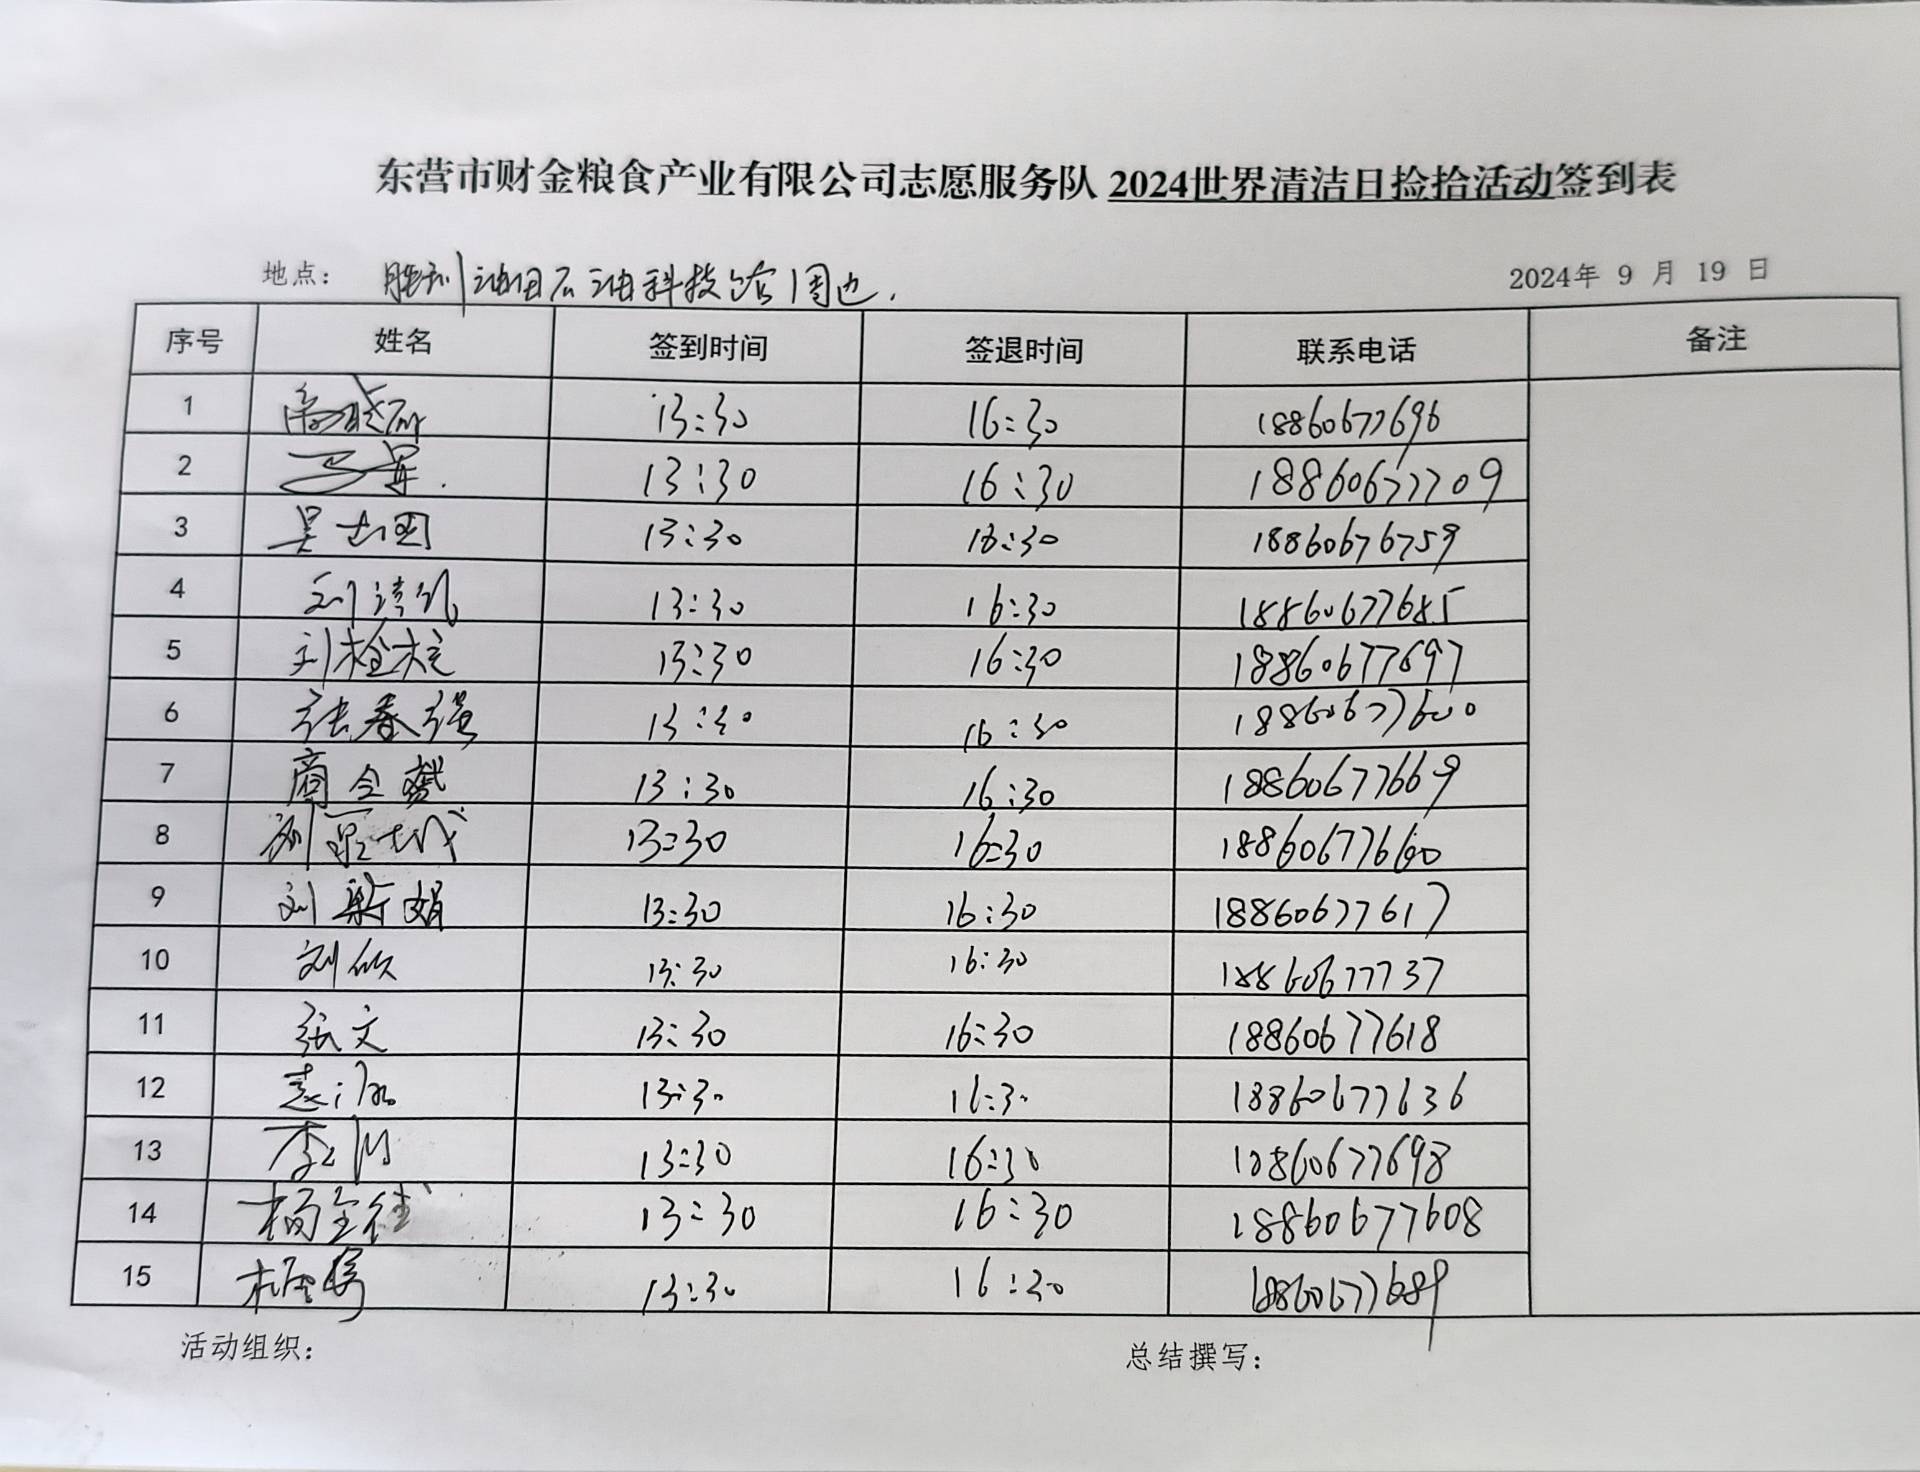 东营市财金粮食产业有限公司志愿服务队 2024世界清洁日捡拾活动签到表
地点： 胜利油田石油科技馆周边. 2024年 9 月 19 日
序号 姓名 签到时间 签退时间 联系电话 备注
1 13:30 16:30 18860677696
2 13:30 16:30 18860677709
3 13:30 16:30 18860676759
4 13:30 16:30 18860677685
5 13:30 16:30 18860677697
6 张春强 13:30 16:30 18860677600
7 13:30 16:30 18860677669
8 13:30 16:30 18860677660
9 刘新娟 13:30 16:30 18860677617
10 刘欣 13:30 16:30 18860677737
11 张文 13:30 16:30 18860677618
12 13:30 16:30 18860677636
13 13:30 16:30 18860677698
14 13:30 16:30 18860677608
15 13:30 16:30 18860677689
活动组织： 总结撰写：